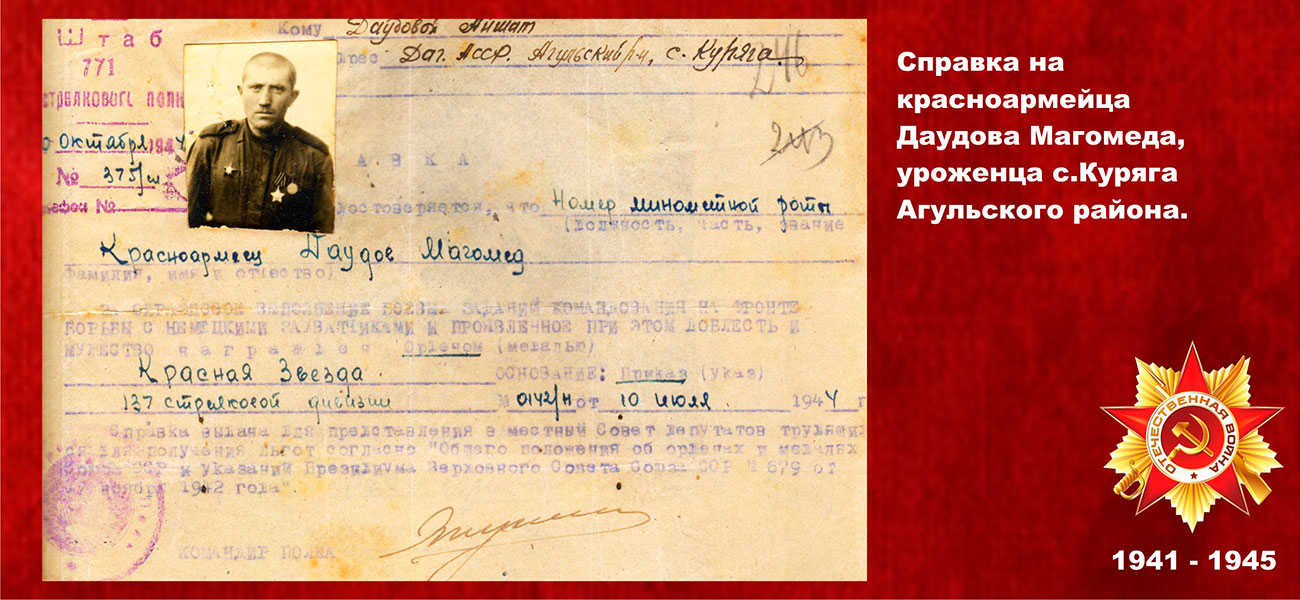 Штаб
771
СТРЕЛКОВОГО ПОЛКА
Октября 1944
№ 375/ш
Кому Даудовой Аишат
Даг. АССР. Агульский р/н, с. Куряга.
АВКА
достоверяется, что Номер минометной роты
(должность, часть, звание
Красноармеец Даудов Магомед
Фамилия, имя и отчество)
ОБРАЗЦОВОЕ ВЫПОЛНЕНИЕ БОЕВЫХ ЗАДАНИЙ КОМАНДОВАНИЯ НА ФРОНТЕ
БОРЬБЫ С НЕМЕЦКИМИ ЗАХВАТЧИКАМИ И ПРОЯВЛЕННОЕ ПРИ ЭТОМ ДОБЛЕСТЬ И
МУЖЕСТВО награжден Орденом (медалью)
Красная Звезда ОСНОВАНИЕ: Приказ (указ)
137 стрелковой дивизии № 0142/н от 10 июля 1944 г
Справка выдана для представления в местный Совет депутатов трудящих
ся для получения льгот согласно "Общего положения об орденах и медалях
Союза ССР и указаний Президиума Верховного Совета Союза ССР № 679 от
ноября 1942 года".
КОМАНДИР ПОЛКА
Справка на
красноармейца
Даудова Магомеда,
уроженца с.Куряга
Агульского района.
ОТЕЧЕСТВЕННАЯ ВОЙНА
1941 - 1945